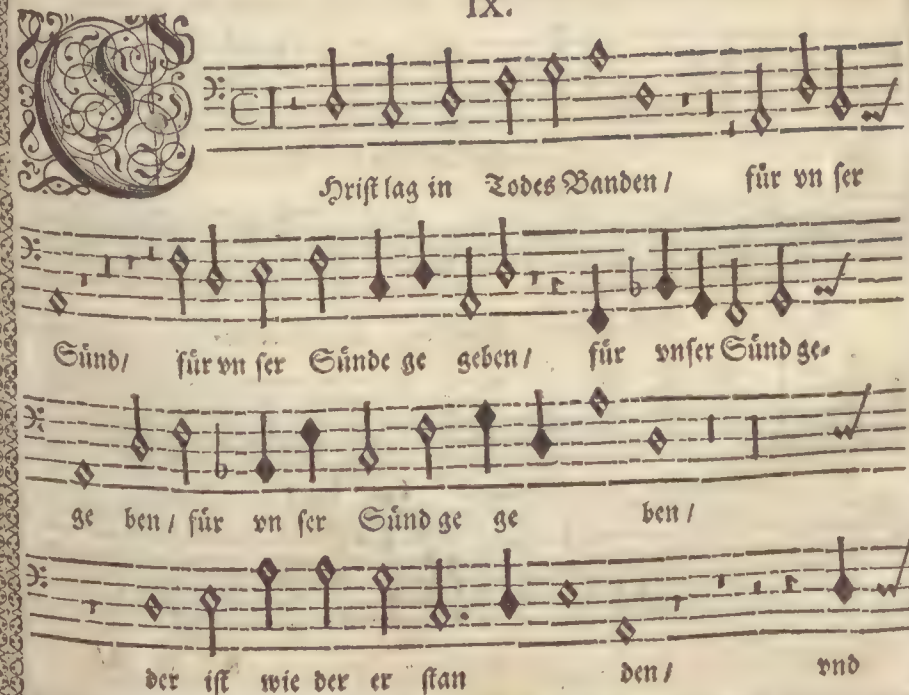 IX.
CHrist lag in Todes Banden / für vn ser
Sünd / für vn ser Sünde ge geben / für vnser Sünd ge-
ge ben / für vn ser Sünd ge ge ben /
der ist wie der er stan den / vnd